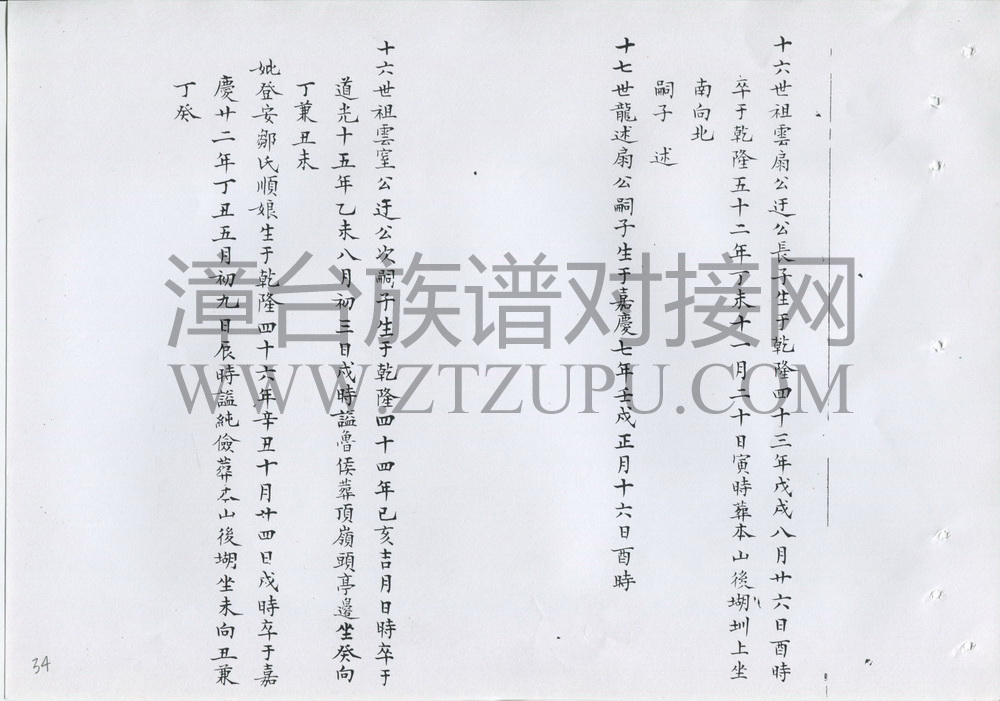 十六世祖雲扇公迂公長子生于乾隆四十三年戊戌八月廿六日酉時
卒于乾隆五十二年丁未十一月二十日寅時葬本山後堋圳上坐
南向北
嗣子 述
十七世龍述扇公嗣子生于嘉慶七年壬戌正月十六日酉時
十六世祖雲室公迂公次嗣子生于乾隆四十四年己亥吉月日時卒于
道光十五年乙未八月初三日戌時謚魯侯葬頂嶺頭亭邊坐癸向
丁兼丑未
妣登安鄒氏順娘生于乾隆四十六年辛丑十月廿四日戌時卒于嘉
慶廿二年丁丑五月初九日辰時謚純儉葬本山後堋坐未向丑兼
丁癸
34
漳台族谱对接网
WWW.ZTZUPU.COM